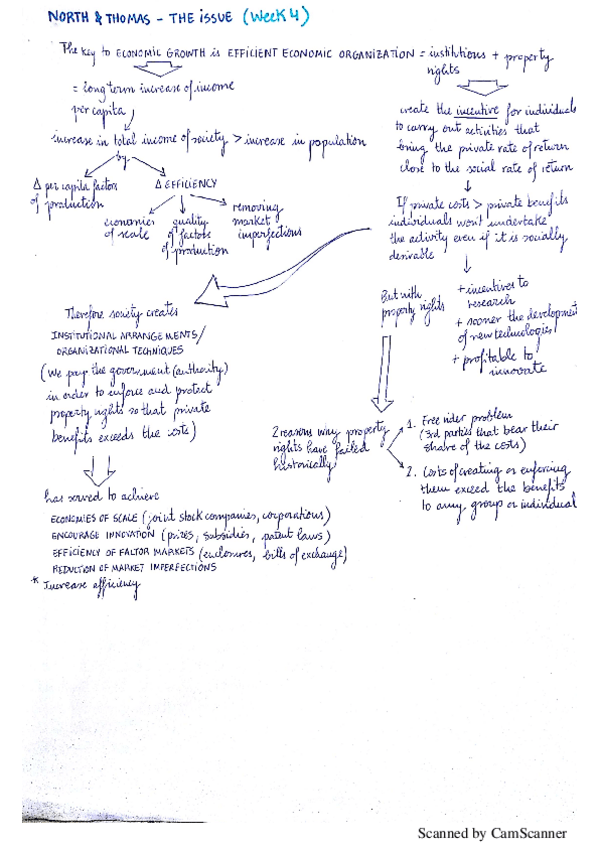 NORTH & THOMAS - THE ISSUE (Week 4)
The key to ECONOMIC GROWTH is EFFICIENT ECONOMIC ORGANIZATION = institutions + property
rights
= long term increase of income
per capita
increase in total income of society > increase in population
by
Δ per capita factors
of production
Δ EFFICIENCY
economies
of scale
quality
of factors
of production
removing
market
imperfections
create the incentive for individuals
to carry out activities that
bring the private rate of return
close to the social rate of return
If private costs > private benefits
individuals won't undertake
the activity even if it is socially
desirable
But with
property rights
+ incentives to
research
+ sooner the development
of new technologies
+ profitable to
innovate
Therefore society creates
INSTITUTIONAL ARRANGEMENTS/
ORGANIZATIONAL TECHNIQUES
(We pay the government (authority)
in order to enforce and protect
property rights so that private
benefits exceeds the costs)
2 reasons why property
rights have failed
historically
1. Free rider problem
(3rd parties that bear their
share of the costs)
2. Costs of creating or enforcing
them exceed the benefits
to any group or individual
has served to achieve
ECONOMIES OF SCALE (joint stock companies, corporations)
ENCOURAGE INNOVATION (prizes, subsidies, patent laws)
EFFICIENCY OF FACTOR MARKETS (enclosures, bills of exchange)
REDUCTION OF MARKET IMPERFECTIONS
* Increase efficiency
Scanned by CamScanner